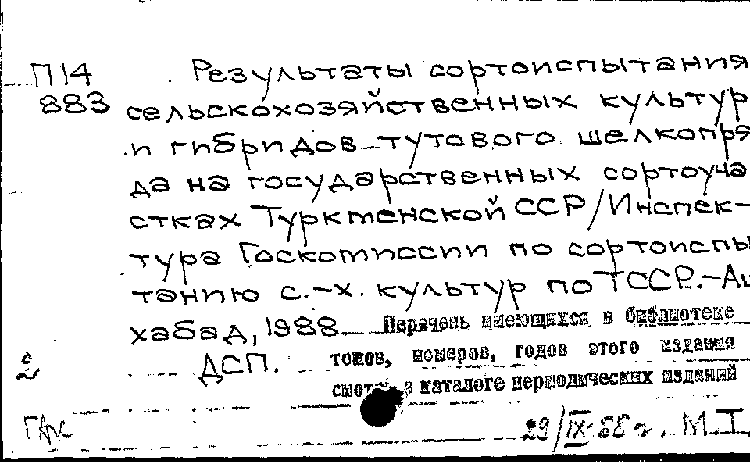 П14 Результаты сортоиспытания
883 сельскохозяйственных культур
и гибридов тутового шелкопря
да на государственных сортоуча
стках Туркменской ССР/Инспек-
тура Госкомиссии по сортоиспы
танию с.-х. культур по ТССР.-Аш
хабад, 1988 Перечень имеющихся в библиотеке
ДСП. томов, номеров, годов этого издания
смотри в каталоге периодических изданий
29/IX-88 г. М.I.